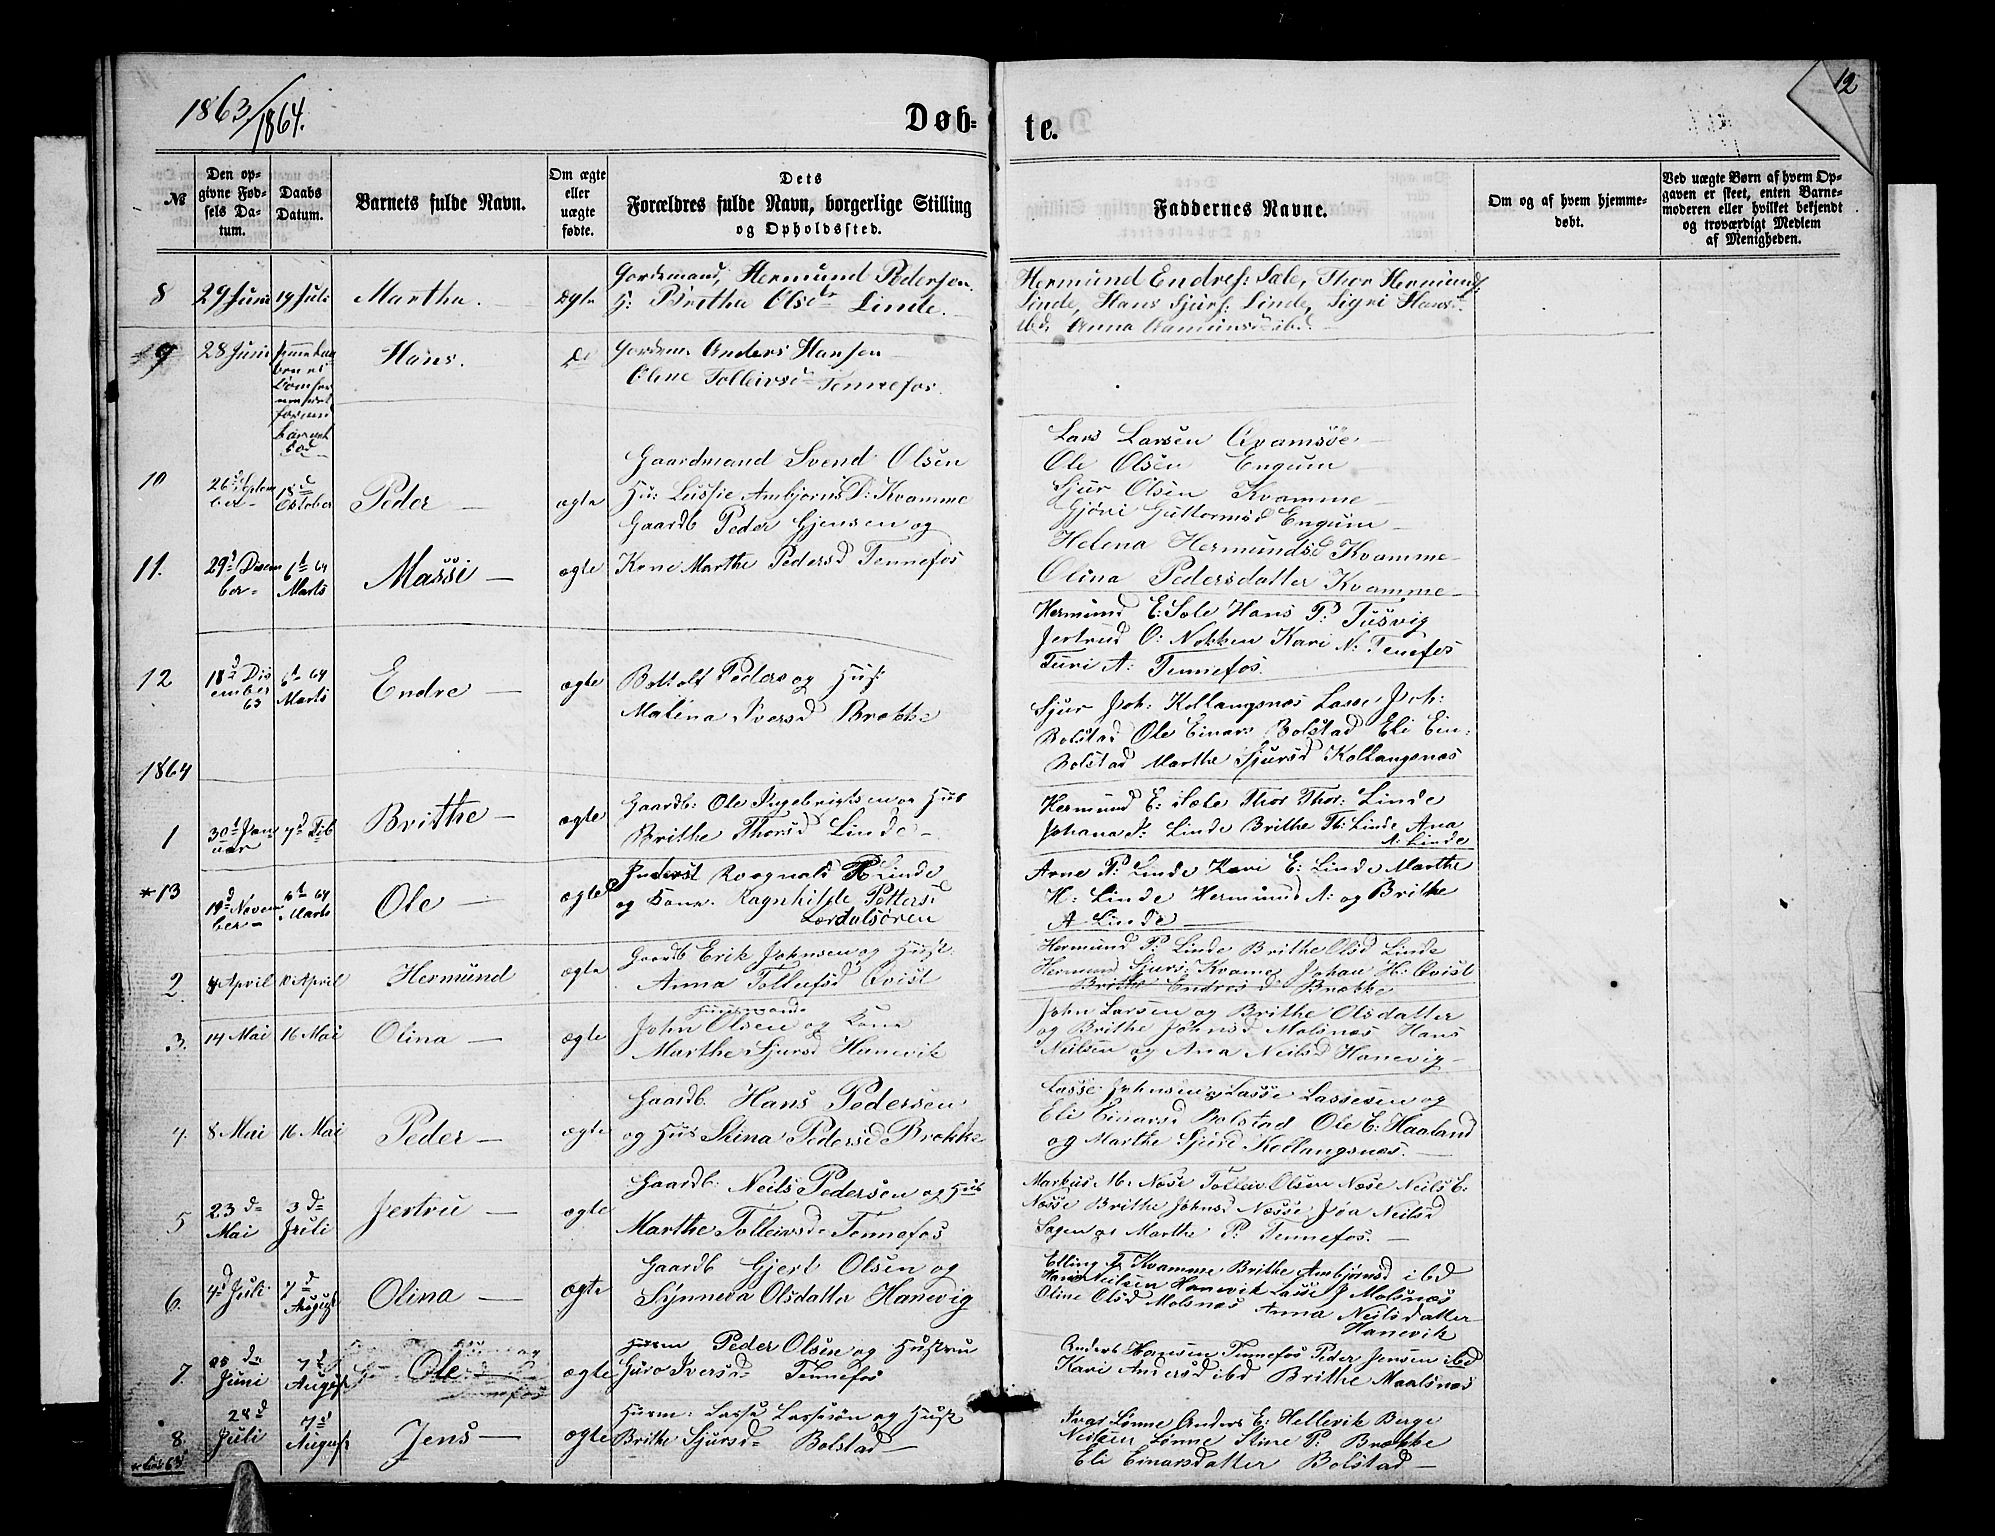 1863/1864.
Døb-
te.
12
№
Den op-
givne Fød-
sels Da-
tum.
Daabs
Datum.
Barnets fulde Navn.
Om ægte
eller
uægte
fødte.
Dets
Forældres fulde Navn, borgerlige Stilling
og Opholdssted.
Faddernes Navne.
Om og af hvem hjemme-
døbt.
Ved uægte Børn af hvem Op-
gaven er skeet, enten Barne-
moderen eller hvilket bekjendt
og troværdigt Medlem
af Menigheden.
8 29 Juni 19 Juli Martha. ægte
Gordmand, Hermund Pedersen
H: Britha Olsdr Linde.
Hermund Endres: Sæle, Thor Hermund:
Linde, Hans Sjurs: Linde, Sigri Hans
ibd, Anna
9 28 Juni Hans. do
Gordm. Anders Hansen
Oline Tolleivsd Tennefos.
10 26d Septem
ber 18d
October Peder — ægte
Gaardmand Svend Olsen
Hu: Lussie Ambjørns D: Kvamme
Lars Larsen Qvamsøe —
Ole Olsen Engum
Sjur Olsen Kvamme —
Gjøri Guttormsd Engum —
Helena Hermundsd Kvamme —
Olina Pedersdatter Kvamme —
11. 29d Decem
ber — 6d 64
Marts Massi — ægte
Gaardb Peder Gjensen og
Kone Marthe Pedersd Tennefos
Hermund E: Sæle Hans P: Tusvig
Jertrud O: Nokken Kari N: Tenefos
Turi A: Tennefos.
12 18d Dis
ember
63 6d 64
Marts Endre — ægte
Botholf Peders og Hust
Malina Iversd Brække
Sjur Joh: Kollangsnæs Lasse Joh:
Bolstad Ole Einars Bolstad Eli Ein:
Bolstad Marthe Sjursd Kollangsnæs
1864
1 30d Jan
uar 7d Feb Brithe — ægte
Gaardb: Ole Ingebrigtsen og Hus
Brithe Thorsd Linde —
Hermund E: Sæle Thor Thor: Linde
Johana P: Linde Brithe Th: Linde Ana
A: Linde
*13 19d Novem
ber — 6d 64
Marts Ole — ægte
Inderst Rognald R Linde
og Kone Ragnhilde Pettersd
Lærdalsøren
Arne P: Linde Kari E: Linde Marthe
H: Linde Hermund A: og Brithe
A Linde —
2. 4 April 10 April Hermund ægte
Gaardb Erik Johnsen og Hust.
Anna Tollefsd Qvist
Hermund P: Linde Brithe Olsd Linde
Hermund Sjurs: Kvame Johan H: Qvist
Brithe Endres d Brække
3. 14 Mai 16 Mai Olina — ægte
Huusmand
John Olsen og Kone
Marthe Sjursd Hanevik
John Larsen og Brithe Olsdatter
og Brithe Johnsd Molsnæs Hans
Neilsen og Ana Neilsd Hanevig —
4. 8 Mai 16 Mai Peder — ægte
Gaardb. Hans Pedersen
og Hus Stina Pedersd Brække
Lasse Johnsen og Lasse Lassesen og
Eli Einarsd Bolstad Ole E: Haaland
og Marthe Sjursd Kollangsnæs. —
5 23 d
Mai 3 d
Juli Jertru — ægte
Gaardb: Neils Pedersen og Hus
Marthe Tolleivsd Tennefos
Markus M. Næse Tolleiv Olsen Næse Neils E:
Næsse Brithe Johnsd Næsse Joa Neilsd
Sagen og Marthe P: Tennefos. —
6. 4d Juli 7 d
August Olina — ægte
Gaardb Gjert Olsen og
Synneva Olsdatter Hanevig
Elling T Kvamme Brithe Ambjørnsd ibd
Hans Neilsen Hanevik Lasse J Molsnæs
Oline Olsd Molsnæs Anna Neilsdatter
Hanevik
7. 25 d
Juni 7 d
August Ole — ægte
Husm Peder Olsen og Hustru
Guro Iversd Tennefos
Anders Hansen Tennefos Peder Jensen ibd
Kari Andersd ibd Brithe Maalsnæs
8. 28 d
Juli 7 d
August Jens — ægte
Husm: Lasse Lassesøn og Hust
Brithe Sjursd Bolstad —
Ivar Lønne Anders E: Hellevik Berge
Neilsen Lønne Stine P: Brække
Eli Einarsdatter Bolstad —